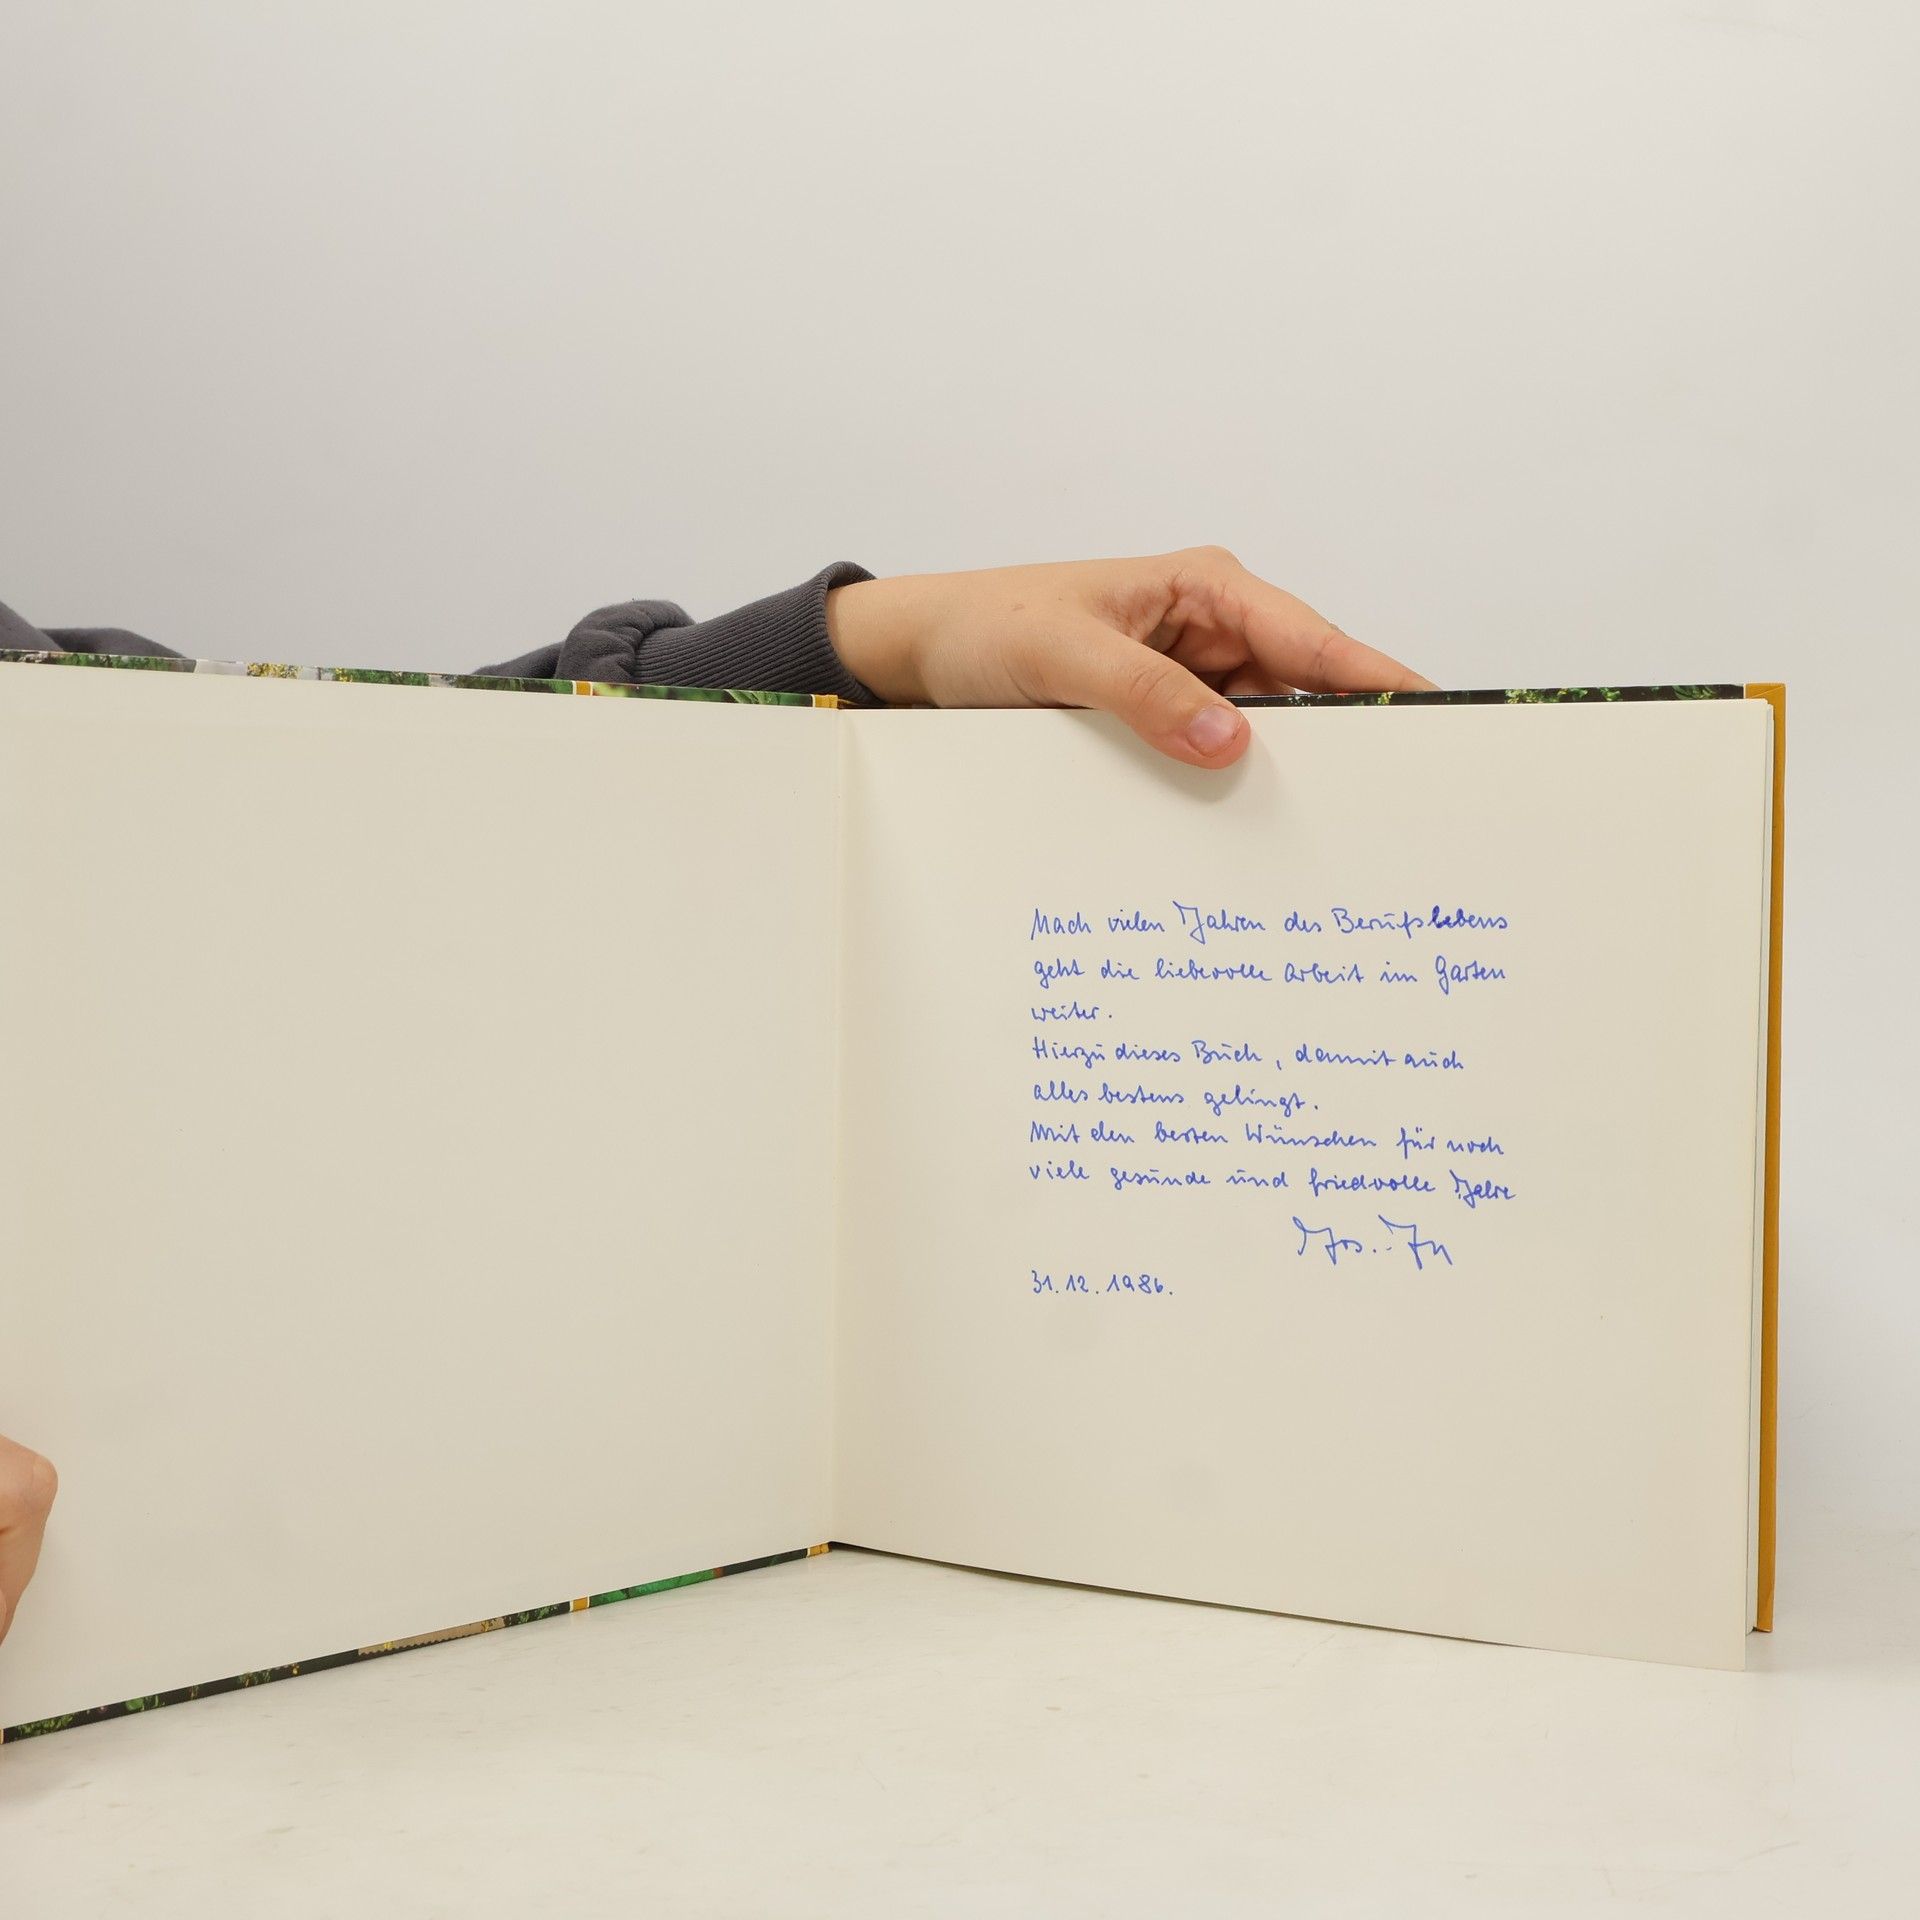 Nach vielen Jahren des Berufslebens
geht die liebevolle Arbeit im Garten
weiter.
Hierzu dieses Buch, damit auch
alles bestens gelingt.
Mit den besten Wünschen für noch
viele gesunde und friedvolle Jahre
31.12.1986.